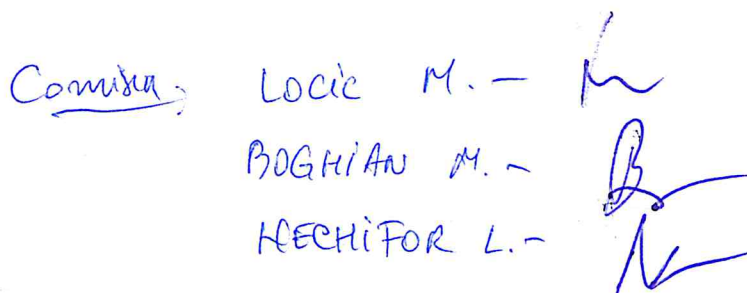 Comisia: LOCIC M. -
BOGHIAN M. -
NECHIFOR L. -